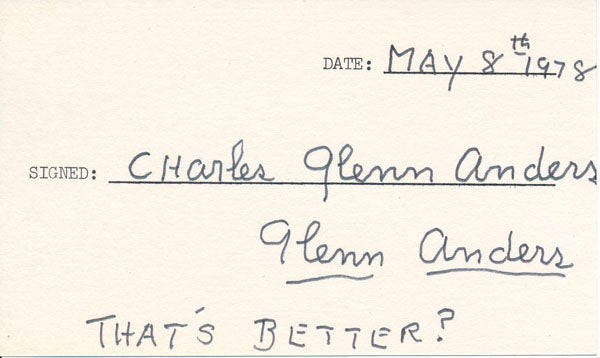 DATE: MAY 8th 1978
SIGNED: CHarles Glenn Anders
Glenn Anders
THAT'S BETTER?